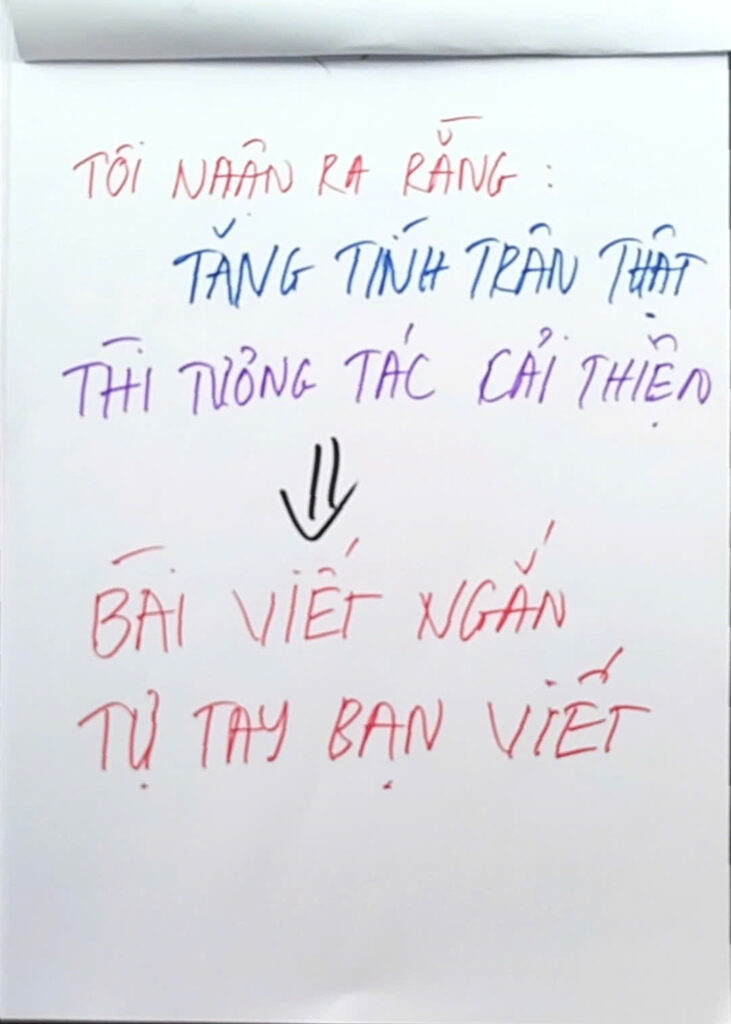 TÔI NHẬN RA RẰNG:
TĂNG TÍNH TRÂN THẬT
THÌ TƯƠNG TÁC CẢI THIỆN
⇓
BÀI VIẾT NGẮN
TỰ TAY BẠN VIẾT